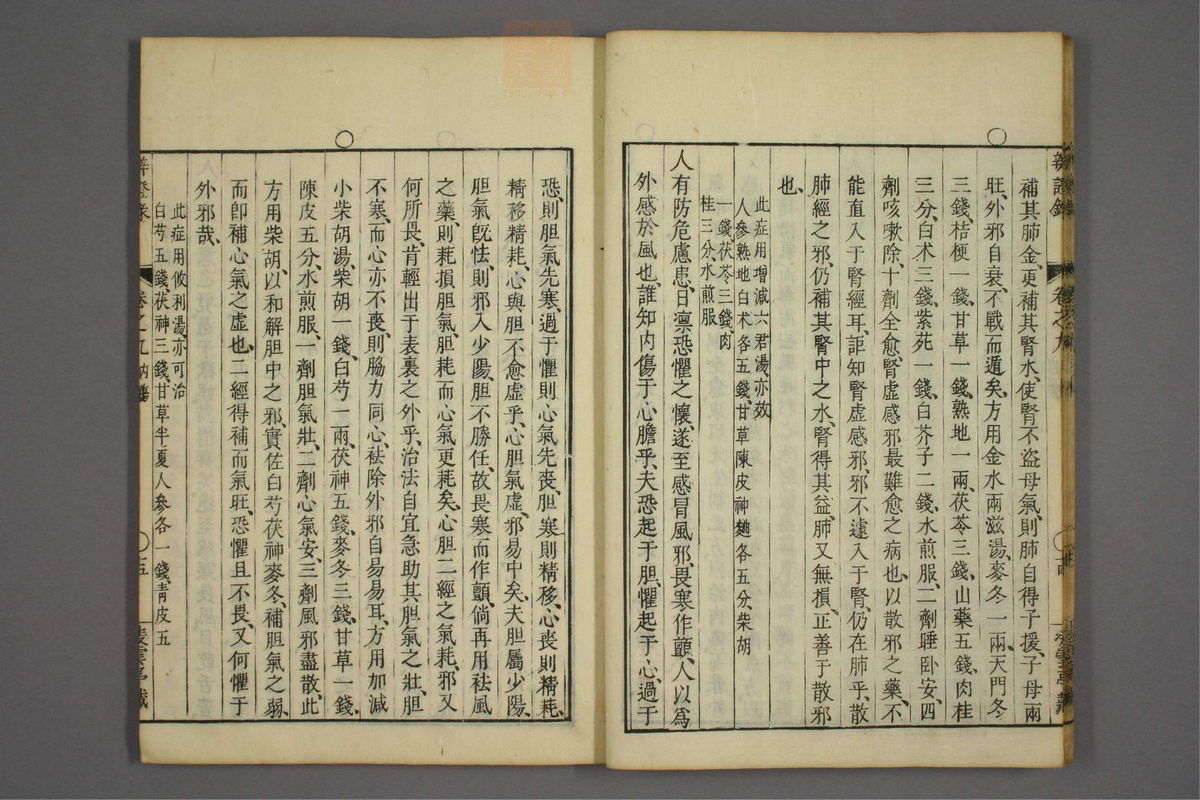 辨證錄
卷之九
補其肺金、更補其腎水、使腎不盜母氣、則肺自得子援、子母兩
旺、外邪自衰、不戰而遁矣、方用金水兩滋湯、麥冬一兩、天門冬
三錢、桔梗一錢、甘草一錢、熟地一兩、茯苓三錢、山藥五錢、肉桂
三分、白术三錢、紫菀一錢、白芥子二錢、水煎服、二劑睡卧安、四
劑咳嗽除、十劑全愈、腎虛感邪最難愈之病也、以散邪之藥、不
能直入于腎經耳、詎知腎虛感邪、邪不遽入于腎、仍在肺乎、散
肺經之邪、仍補其腎中之水、腎得其益、肺又無損、正善于散邪
也、
此症用增減六君湯、亦效
人參熟地白术各五錢、甘草陳皮神麯各五分、柴胡
一錢、茯苓三錢、肉
桂三分、水煎服
人有防危慮患、日凜恐懼之懷、遂至感冒風邪、畏寒作顫、人以爲
外感於風也、誰知内傷于心膽乎、夫恐起于胆、懼起于心、過于
恐、則胆氣先寒、過于懼、則心氣先丧、胆寒則精移、心丧則精耗、
精移精耗、心與胆不愈虛乎、心胆氣虛、邪易中矣、夫胆屬少陽、
胆氣旣怯、則邪入少陽、胆不勝任、故畏寒而作顫、倘再用祛風
之藥、則耗損胆氣、胆耗而心氣更耗矣、心胆二經之氣耗、邪又
何所畏、肯輕出于表裏之外乎、治法自宜急助其胆氣之壯、胆
不寒、而心亦不丧、則脇力同心、祛除外邪自易易耳、方用加減
小柴胡湯、柴胡一錢、白芍一兩、茯神五錢、麥冬三錢、甘草一錢、
陳皮五分、水煎服、一劑胆氣壯、二劑心氣安、三劑風邪盡散、此
方用柴胡、以和解胆中之邪、實佐白芍茯神麥冬、補胆氣之弱、
而卽補心氣之虛也、二經得補而氣旺、恐懼且不畏、又何懼于
外邪哉、
此症用攸利湯、亦可治
白芍五錢、茯神三錢、甘草半夏人參各一錢、青皮五
辨證錄
卷之九
十五